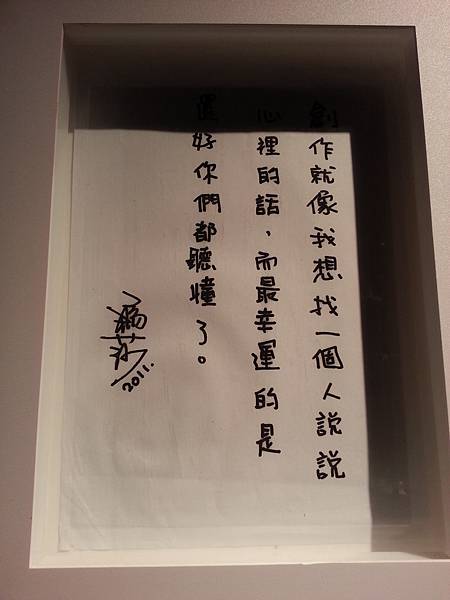 創作就像我想找一個人說說
心裡的話，而最幸運的是
還好你們都聽懂了。
2011.